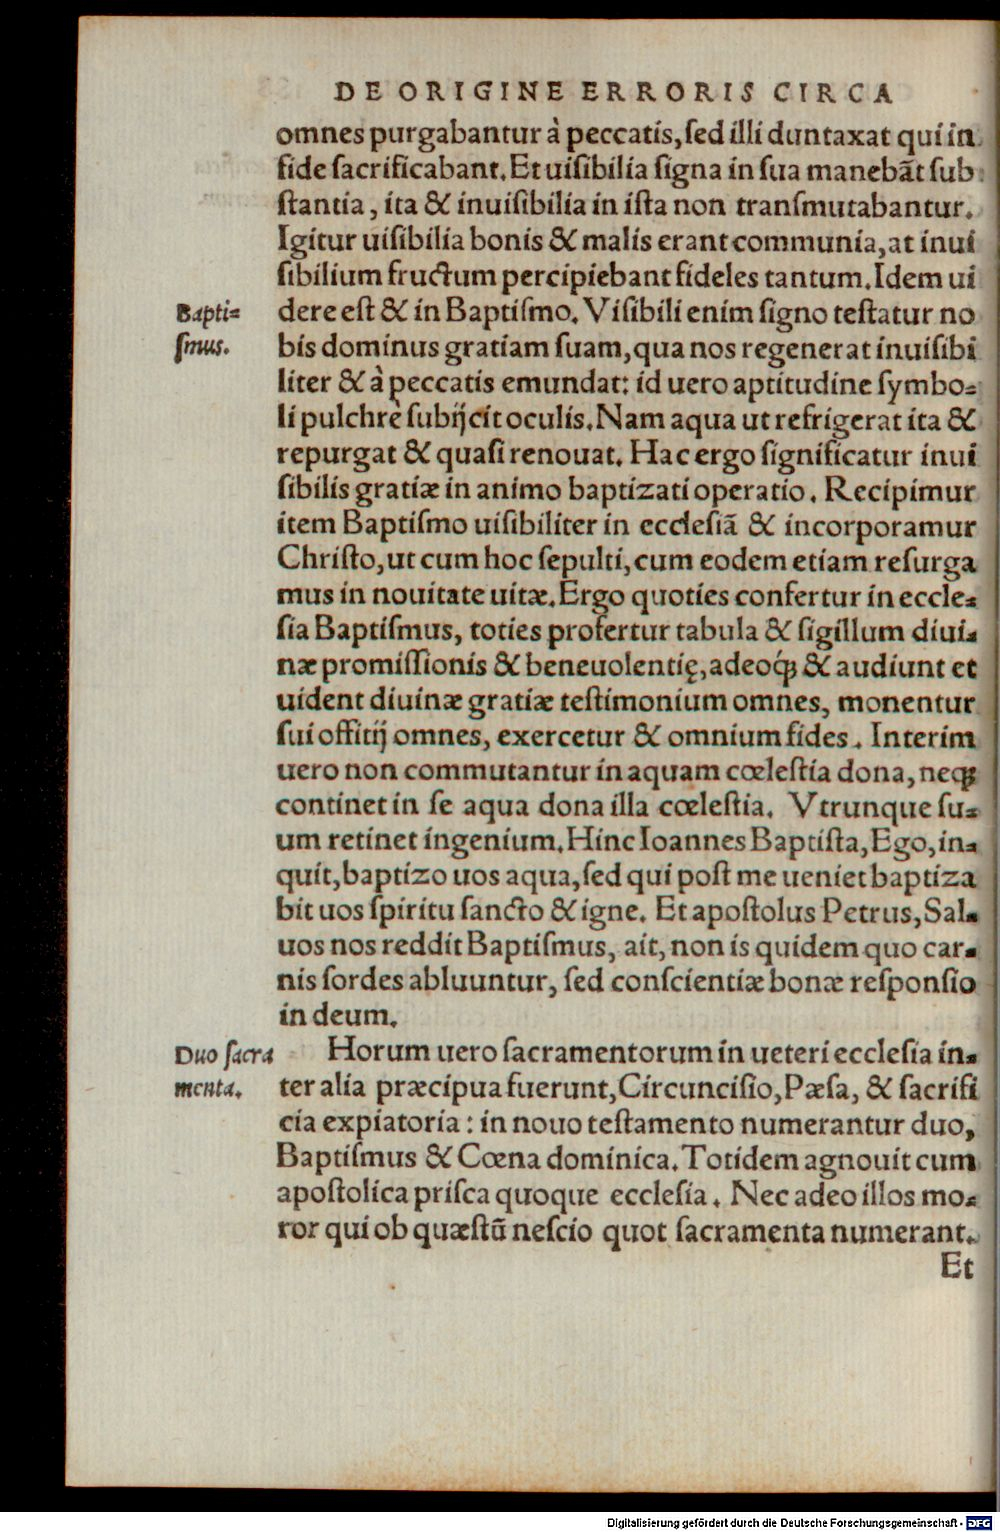 DE ORIGINE ERRORIS CIRCA
omnes purgabantur à peccatis, ſed illi duntaxat qui in
fide ſacrificabant. Et uiſibilia ſigna in ſua manebãt ſub
ſtantia, ita & inuiſibilia in iſta non tranſmutabantur.
Igitur uiſibilia bonis & malis erant communia, at inui
ſibilium fructum percipiebant fideles tantum. Idem ui
Bapti⸗
dere eſt & in Baptiſmo. Viſibili enim ſigno teſtatur no
ſmus.
bis dominus gratiam ſuam, qua nos regenerat inuiſibi
liter & à peccatis emundat: id uero aptitudine ſymbo⸗
li pulchrè ſubijcit oculis. Nam aqua ut refrigerat ita &
repurgat & quaſi renouat. Hac ergo ſignificatur inui
ſibilis gratiæ in animo baptizati operatio. Recipimur
item Baptiſmo uiſibiliter in eccleſiã & incorporamur
Chriſto, ut cum hoc ſepulti, cum eodem etiam reſurga
mus in nouitate uitæ. Ergo quoties confertur in eccle⸗
ſia Baptiſmus, toties profertur tabula & ſigillum diui⸗
næ promiſſionis & beneuolentię, adeoq́ꝫ & audiunt et
uident diuinæ gratiæ teſtimonium omnes, monentur
ſui offitij omnes, exercetur & omnium fides. Interim
uero non commutantur in aquam cœleſtia dona, neqꝫ
continet in ſe aqua dona illa cœleſtia. Vtrunque ſu⸗
um retinet ingenium. Hinc Ioannes Baptiſta, Ego, in⸗
quit, baptizo uos aqua, ſed qui poſt me ueniet baptiza
bit uos ſpiritu ſancto & igne. Et apoſtolus Petrus, Sal⸗
uos nos reddit Baptiſmus, ait, non is quidem quo car⸗
nis ſordes abluuntur, ſed conſcientiæ bonæ reſponſio
in deum.
Duo ſacra
Horum uero ſacramentorum in ueteri eccleſia in⸗
menta.
ter alia præcipua fuerunt, Circunciſio, Pæſa, & ſacrifi
cia expiatoria: in nouo teſtamento numerantur duo,
Baptiſmus & Cœna dominica. Totidem agnouit cum
apoſtolica priſca quoque eccleſia. Nec adeo illos mo⸗
ror qui ob quæſtũ neſcio quot ſacramenta numerant.
Et
Digitalisierung gefördert durch die Deutsche Forschungsgemeinschaft - DFG